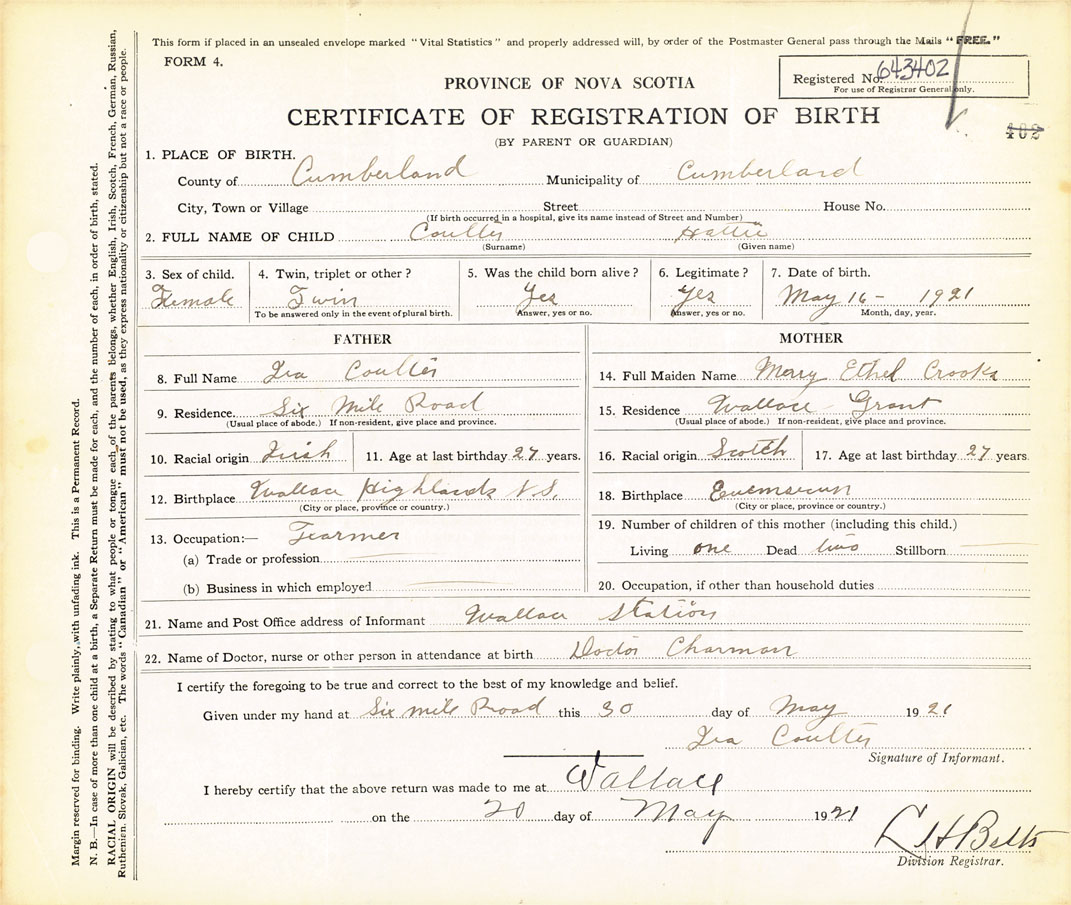 This form if placed in an unsealed envelope marked "Vital Statistics" and properly addressed will, by order of the Postmaster General pass through the Mails "FREE."
FORM 4.
PROVINCE OF NOVA SCOTIA
Registered No. 643402
For use of Registrar General only.
CERTIFICATE OF REGISTRATION OF BIRTH
402
(BY PARENT OR GUARDIAN)
1. PLACE OF BIRTH.
County of Cumberland Municipality of Cumberland
City, Town or Village Street House No.
(If birth occurred in a hospital, give its name instead of Street and Number)
2. FULL NAME OF CHILD Coulter Hattie
(Surname) (Given name)
3. Sex of child. 4. Twin, triplet or other? 5. Was the child born alive? 6. Legitimate? 7. Date of birth.
Female Twin Yes Yes May 16 - 1921
To be answered only in the event of plural birth. Answer, yes or no. Answer, yes or no. Month, day, year.
FATHER MOTHER
8. Full Name Ira Coulter
14. Full Maiden Name Merry Ethel Crooks
9. Residence. Six Mile Road
(Usual place of abode.) If non-resident, give place and province.
15. Residence Wallace Grant
(Usual place of abode.) If non-resident, give place and province.
10. Racial origin Irish 11. Age at last birthday 27 years.
16. Racial origin Scotch 17. Age at last birthday 27 years.
12. Birthplace Wallace Highlands N.S.
(City or place, province or country.)
18. Birthplace
(City or place, province or country.)
13. Occupation:— Fearmer
(a) Trade or profession
(b) Business in which employed
19. Number of children of this mother (including this child.)
Living one Dead two Stillborn
20. Occupation, if other than household duties
21. Name and Post Office address of Informant Wallace Station
22. Name of Doctor, nurse or other person in attendance at birth Doctor Charman
I certify the foregoing to be true and correct to the best of my knowledge and belief.
Given under my hand at Six mile Road this 30 day of May 1921
Ira Coulter
Signature of Informant.
I hereby certify that the above return was made to me at Wallace
on the 20 day of May 1921
L H Betts
Division Registrar.
Margin reserved for binding. Write plainly, with unfading ink. This is a Permanent Record.
N. B.—In case of more than one child at a birth, a Separate Return must be made for each, and the number of each, in order of birth, stated.
RACIAL ORIGIN will be described by stating to what people or tongue each of the parents belongs, whether English, Irish, Scotch, French, German, Russian,
Ruthenien, Slovak, Galician, etc. The words "Canadian" or "American" must not be used, as they express nationality or citizenship but not a race or people.